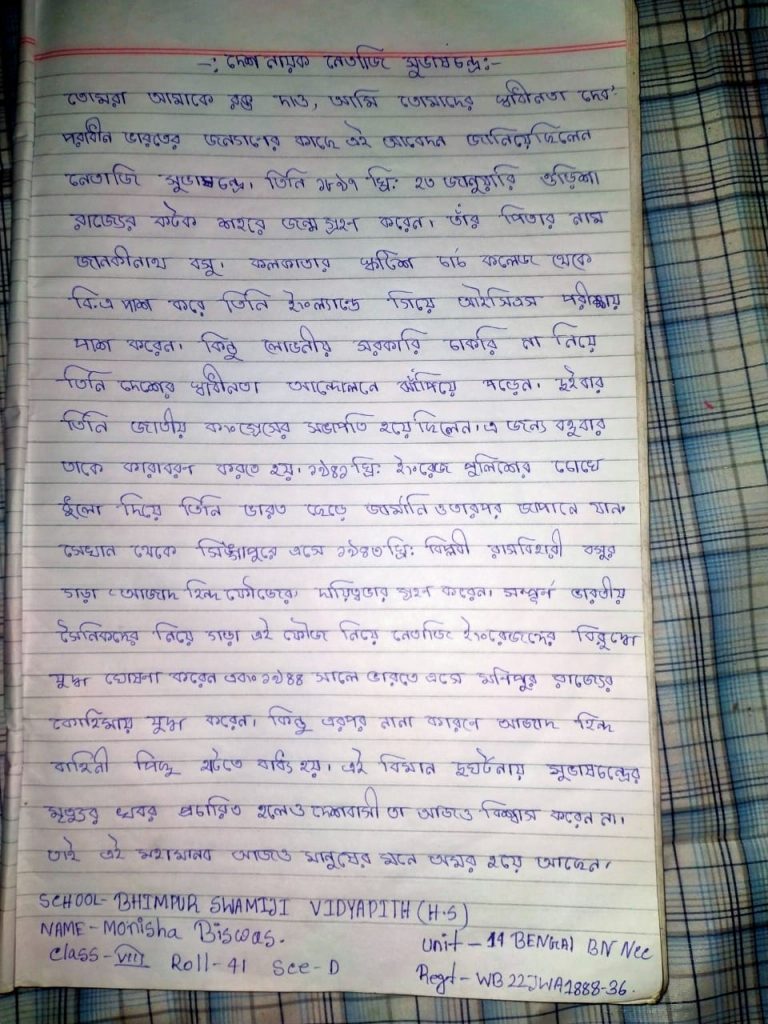 -: দেশ নায়ক নেতাজি সুভাষচন্দ্র:-
তোমরা আমাকে রক্ত দাও, আমি তোমাদের স্বাধীনতা দেব'
পরাধীন ভারতের জনগণের কাছে এই আবেদন জানিয়েছিলেন
নেতাজি সুভাষচন্দ্র। তিনি ১৮৯৭ খ্রি: ২৩ জানুয়ারি ওড়িশা
রাজ্যের কটক শহরে জন্ম গ্রহন করেন। তাঁর পিতার নাম
জানকীনাথ বসু। কলকাতার স্কটিশ চার্চ কলেজ থেকে
বি.এ পাশ করে তিনি ইংল্যান্ডে গিয়ে আইসিএস পরীক্ষায়
পাশ করেন। কিন্তু লোভনীয় সরকারি চাকরি না নিয়ে
তিনি দেশের স্বাধীনতা আন্দোলনে ঝাঁপিয়ে পড়েন। দুইবার
তিনি জাতীয় কংগ্রেসের সভাপতি হয়েছিলেন। এ জন্য বহুবার
তাকে কারাবরণ করতে হয়। ১৯৪১ খ্রি: ইংরেজ পুলিশের চোখে
ধুলো দিয়ে তিনি ভারত ছেড়ে জার্মানি ও তারপর জাপানে যান।
সেখান থেকে সিঙ্গাপুরে এসে ১৯৪৩ খ্রি: বিপ্লবী রাসবিহারী বসুর
গড়া 'আজাদ হিন্দ ফৌজের' দায়িত্বভার গ্রহন করেন। সম্পূর্ন ভারতীয়
সৈনিকদের নিয়ে গড়া এই ফৌজ নিয়ে নেতাজি ইংরেজদের বিরুদ্ধে
যুদ্ধ ঘোষনা করেন এবং ১৯৪৪ সালে ভারতে এসে মনিপুর রাজ্যের
কোহিমায় যুদ্ধ করেন। কিন্তু এরপর নানা কারণে আজাদ হিন্দ
বাহিনী পিছু হটতে বাধ্য হয়। এই বিমান দুর্ঘটনায় সুভাষচন্দ্রের
মৃত্যুর খবর প্রচারিত হলেও দেশবাসী তা আজও বিশ্বাস করেন না।
তাই এই মহামানব আজও মানুষের মনে অমর হয়ে আছেন।
SCHOOL- BHIMPUR SWAMIJI VIDYAPITH (H.S)
NAME- Monisha Biswas.
Unit - 14 BENGAl BN Ncc
Class- VIII Roll- 41 Sec- D
Regt- WB22JWA1888-36.